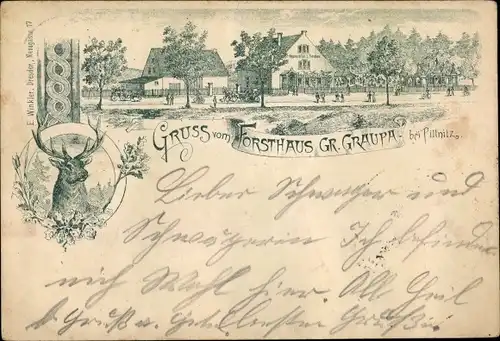 E. Winkler, Dresden,
GRUSS vom FORSTHAUS GR. GRAUPA - bei Pillnitz.
Lieber Schwager und
Schwägerin Ich befinde
mich Wohl hier. All Heil
Gruß u.